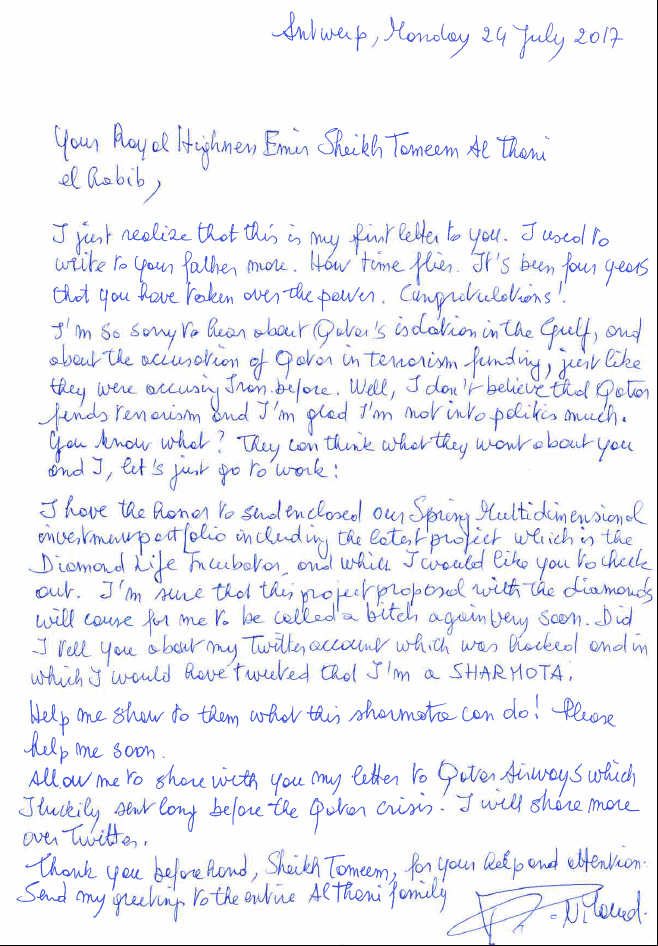 Antwerp, Monday 24 July 2017
Your Royal Highness Emir Sheikh Tameem Al Thani
el Habib,
I just realize that this is my first letter to you. I used to
write to your father more. How time flies. It's been four years
that you have taken over the power. Congratulations!
I'm so sorry to hear about Qatar's isolation in the Gulf, and
about the accusation of Qatar in terrorism funding, just like
they were accusing Iran before. Well, I don't believe that Qatar
funds terrorism and I'm glad I'm not into politics much.
You know what? They can think what they want about you
and I, let's just go to work:
I have the honor to send enclosed our Spring Multidimensional
investment portfolio including the latest project which is the
Diamond Life Incubator, and which I would like you to check
out. I'm sure that this project proposal with the diamonds
will cause for me to be called a bitch again very soon. Did
I tell you about my Twitter account which was hacked and in
which I would have tweeted that I'm a SHARMOTA.
Help me show to them what this sharmota can do! Please
help me soon.
Allow me to share with you my letter to Qatar Airways which
I luckily sent long before the Qatar crisis. I will share more
over Twitter.
Thank you before hand, Sheikh Tameem, for your help and attention.
Send my greeting to the entire Al Thani family